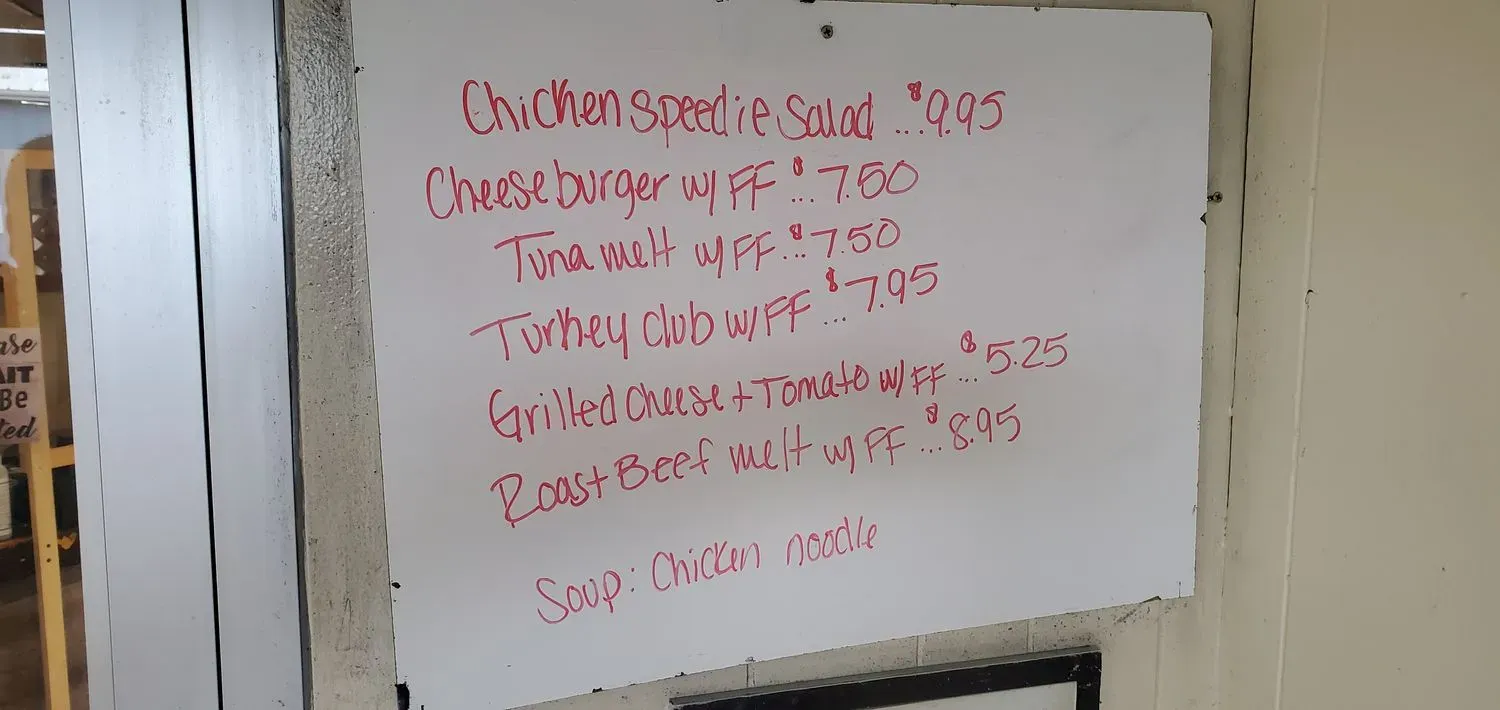 Chicken Speedie Salad ...$9.95
Cheeseburger w/ FF ...$7.50
Tuna melt w/ FF ...$7.50
Turkey Club w/ FF ...$7.95
Grilled Cheese + Tomato w/ FF ...$5.25
Roast Beef melt w/ FF ...$8.95
Soup: Chicken noodle
Be